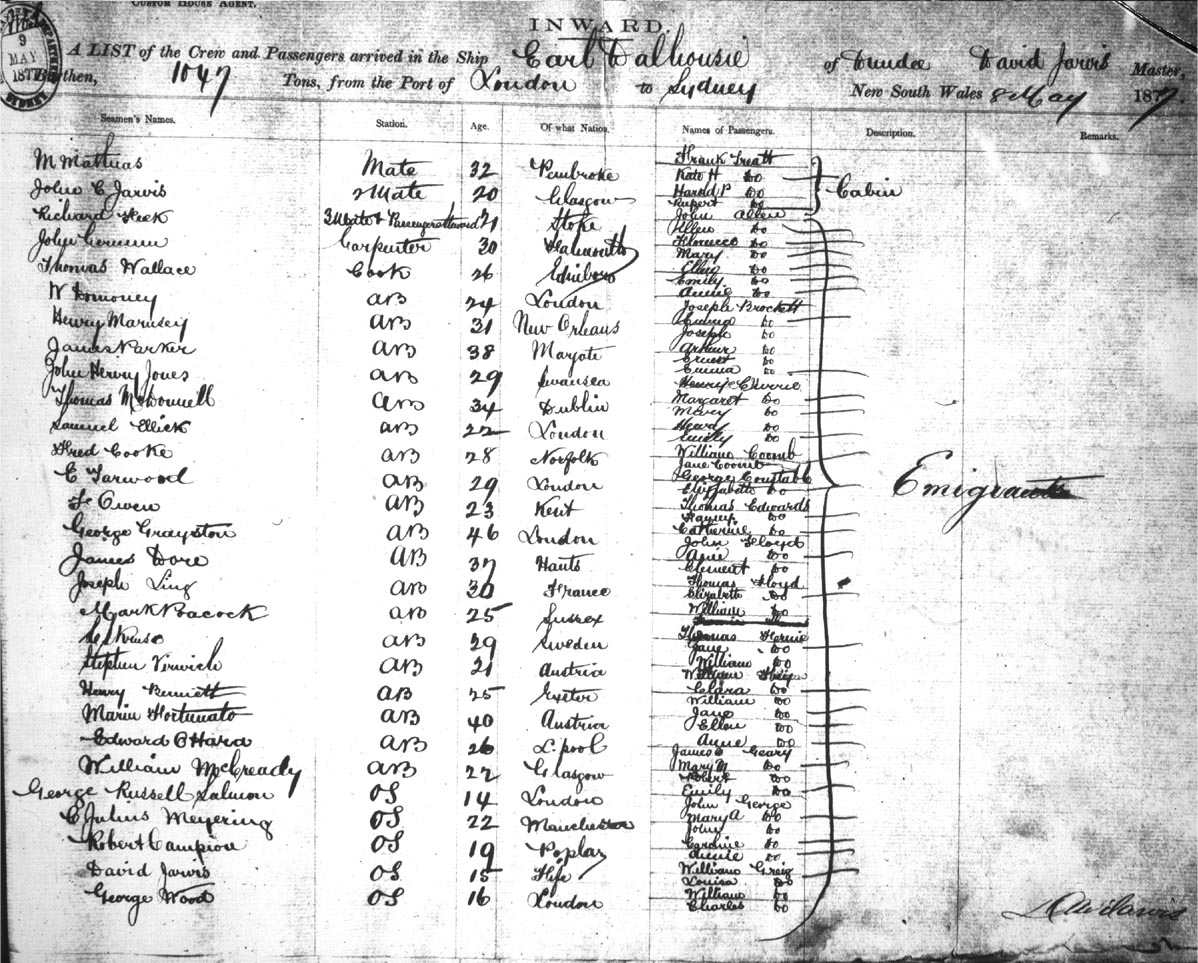 CUSTOM HOUSE AGENT.
9
MAY
187
SYDNEY
INWARD.
A LIST of the Crew and Passengers arrived in the Ship Earl Dalhousie of Dundee David Jarvis Master,
Burthen, 1047 Tons, from the Port of London to Sydney New South Wales 8 May 1877.
Seamen's Names. Station. Age. Of what Nation. Names of Passengers. Description. Remarks.
M Mathias Mate 32 Pembroke
John C Jarvis 2 Mate 20 Glasgow
Richard 3 Mate & Passenger Steward 21 Stoke
John Carpenter 30 Falmouth
Thomas Wallace Cook 26 Edinboro
W Domoney AB 24 London
Henry AB 31 New Orleans
James Parker AB 38 Mayote
John Henry Jones AB 29 Swansea
Thomas McDonnell AB 34 Dublin
Samuel Ellick AB 22 London
Fred Cooke AB 28 Norfolk
E Tarwood AB 29 London
F Owen AB 23 Kent
George Grayston AB 46 London
James Dore AB 37 Hants
Joseph Ling AB 30 France
Mark Peacock AB 25 Sussex
AB 29 Sweden
Stephen AB 21 Austria
Henry Bennett AB 25 Exeter
Marin Fortunato AB 40 Austria
Edward O Hara AB 26 L.pool
William McCready AB 22 Glasgow
George Russell Salmon OS 14 London
C Julius Meyering OS 22 Manchester
Robert Campion OS 19 Poplar
David Jarvis OS 15 Fife
George Wood OS 16 London
Frank Treatt
Kate H Do
Harold P Do
Rupert Do
John Allen
Ellen Do
Florence Do
Mary Do
Do
Emily Do
Annie Do
Joseph Brockett
Do
Joseph Do
Arthur Do
Ernest Do
Emma Do
Henry
Margaret Do
Mary Do
Do
Emily Do
William Coomb
Jane Coomb
George Constable
Elizabeth Do
Thomas Edwards
Do
Catherine Do
John Floyd
Do
Clement Do
Thomas Floyd
Elizabeth Do
William Do
Thomas
Jane Do
William Do
William
Clara Do
William Do
Jane Do
Ellen Do
Anne Do
James Geary
Mary M Do
Robert Do
Emily Do
John George
Mary A Do
John Do
Caroline Do
Annie Do
William Greig
Louisa Do
William Do
Charles Do
Cabin
Emigrants
Jarvis